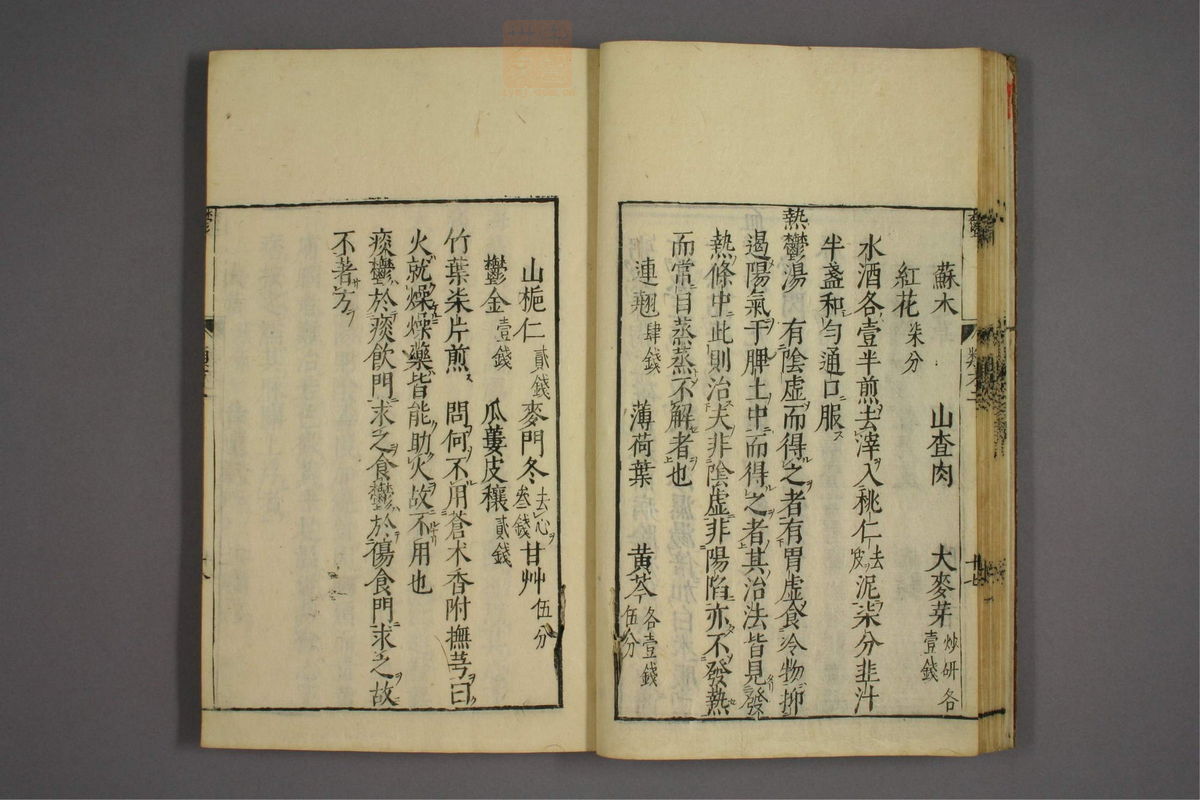 蘇木　山査肉　大麥芽炒研各壹錢
紅花柒分
水酒各壹半煎去滓入桃仁去皮泥柒分韭汁
半盞和匀通口服
熱鬱湯　有陰虚而得之者有胃虚食冷物抑
遏陽氣于脾土中而得之者其治法皆見發
熱條中此則治夫非陰虚非陽陷亦不發熱
而常自蒸蒸不解者也
連翹肆錢　薄荷葉　黄芩各壹錢伍分
山梔仁貳錢　麥門冬去心叁錢　甘艸伍分
鬱金壹錢　瓜蔞皮穰貳錢
竹葉柒片煎　問何不用蒼术香附撫芎曰
火就燥燥藥皆能助火故不用也
痰鬱於痰飲門求之食鬱於傷食門求之故
不著方